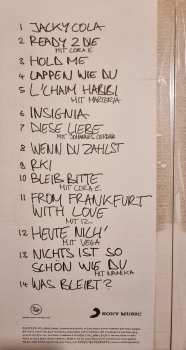 1 JACKY COLA
2 READY 2 DIE
MIT CORA E.
3 HOLD ME
4 LAPPEN WIE DU
5 L'CHAIM HABIBI
MIT MARTERIA
6 INSIGNIA
7 DIESE LIEBE
MIT JOHANNES OERDING
8 WENN DU ZAHLST
9 RKI
10 BLEIB BITTE
MIT CORA E.
11 FROM FRANKFURT
WITH LOVE
12 HEUTE NICH'
MIT VEGA
13 NICHTS IST SO
SCHÖN WIE DU
14 WAS BLEIBT?
SONY MUSIC